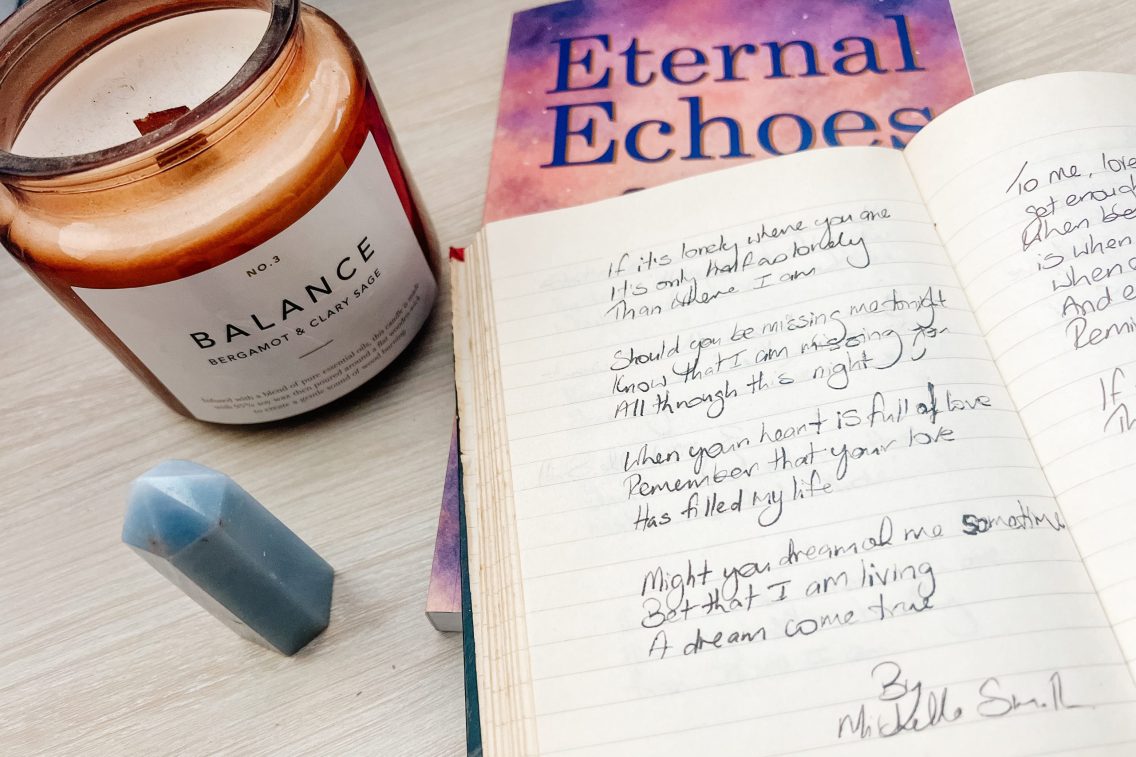 NO.3
BALANCE
BERGAMOT & CLARY SAGE
Infused with a blend of pure essential oils, this candle is made
with 95% soy wax then poured around a flat wooden wick
to create a gentle sound of wood burning
Eternal
Echoes
If it's lonely where you are
It's only half as lonely
Than where I am
Should you be missing me tonight
Know that I am missing
All through this night
When your heart is full of love
Remember that your love
Has filled my life
Might you dream of me sometime
Bet that I am living
A dream come true
By
Michelle Smith
To me, love
get enough
When
is when
when
And
If